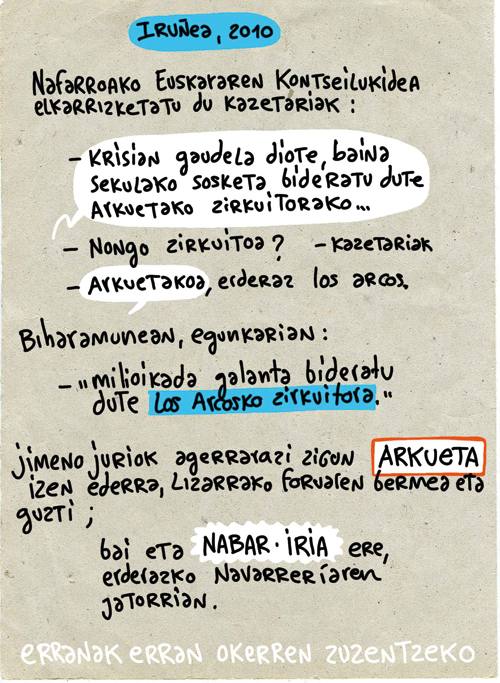 IRUÑEA, 2010
NAFARROAKO EUSKARAREN KONTSEILUKIDEA
ELKARRIZKETATU DU KAZETARIAK :
- KRISIAN GAUDELA DIOTE, BAINA
SEKULAKO SOSKETA BIDERATU DUTE
ARKUETAKO ZIRKUITORAKO...
- NONGO ZIRKUITOA ? - KAZETARIAK
- ARKUETAKOA, ERDERAZ LOS ARCOS.
BIHARAMUNEAN, EGUNKARIAN :
- "MILIOIKADA GALANTA BIDERATU
DUTE LOS ARCOSKO ZIRKUITORA."
JIMENO JURIOK AGERRARAZI ZIGUN ARKUETA
IZEN EDERRA, LIZARRAKO FORUAREN BERMEA ETA
GUZTI ;
BAI ETA NABAR·IRIA ERE,
ERDERAZKO NAVARRERÍAREN
JATORRIAN.
ERRANAK ERRAN OKERREN ZUZENTZEKO